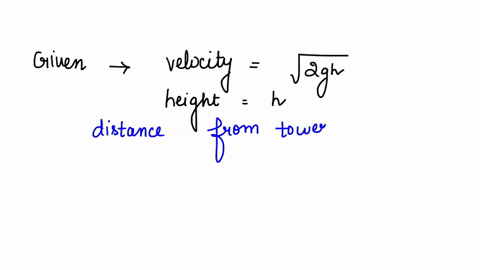 Given → velocity = √2gh
height = h
distance from tower